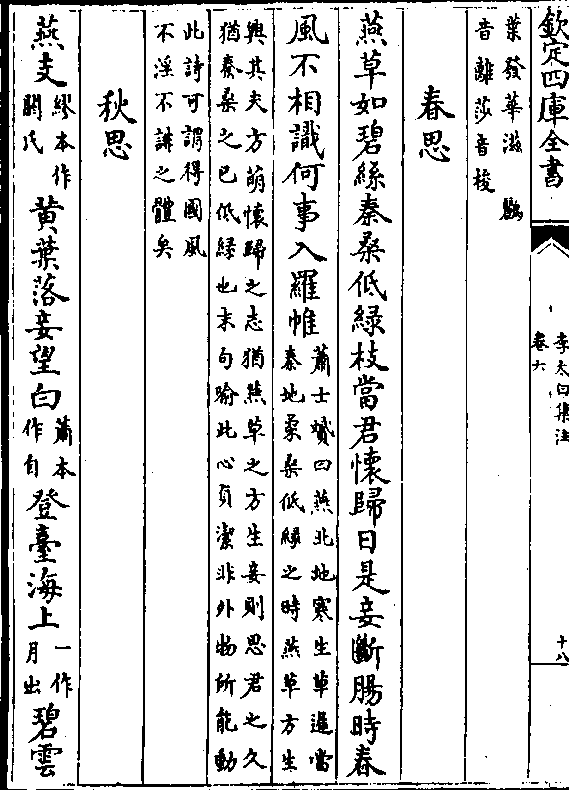 欽定四庫全書
李太白集注
卷六
十八
葉發華滋 鷉
音離莎音梭
春思
燕草如碧絲秦桑低綠枝當君懷歸日是妾斷腸時春
風不相識何事入羅帷
蕭士贇曰燕北地寒生草遲當
秦地柔桑低綠之時燕草方生
興其夫方萌懷歸之志猶燕草之方生妾則思君之久
猶秦桑之已低綠也末句喻此心貞潔非外物所能動
此詩可謂得國風
不淫不誹之體矣
秋思
燕支
繆本作
閼氏
黃葉落妾望白
蕭本
作自
登臺海上
一作
月出
碧雲